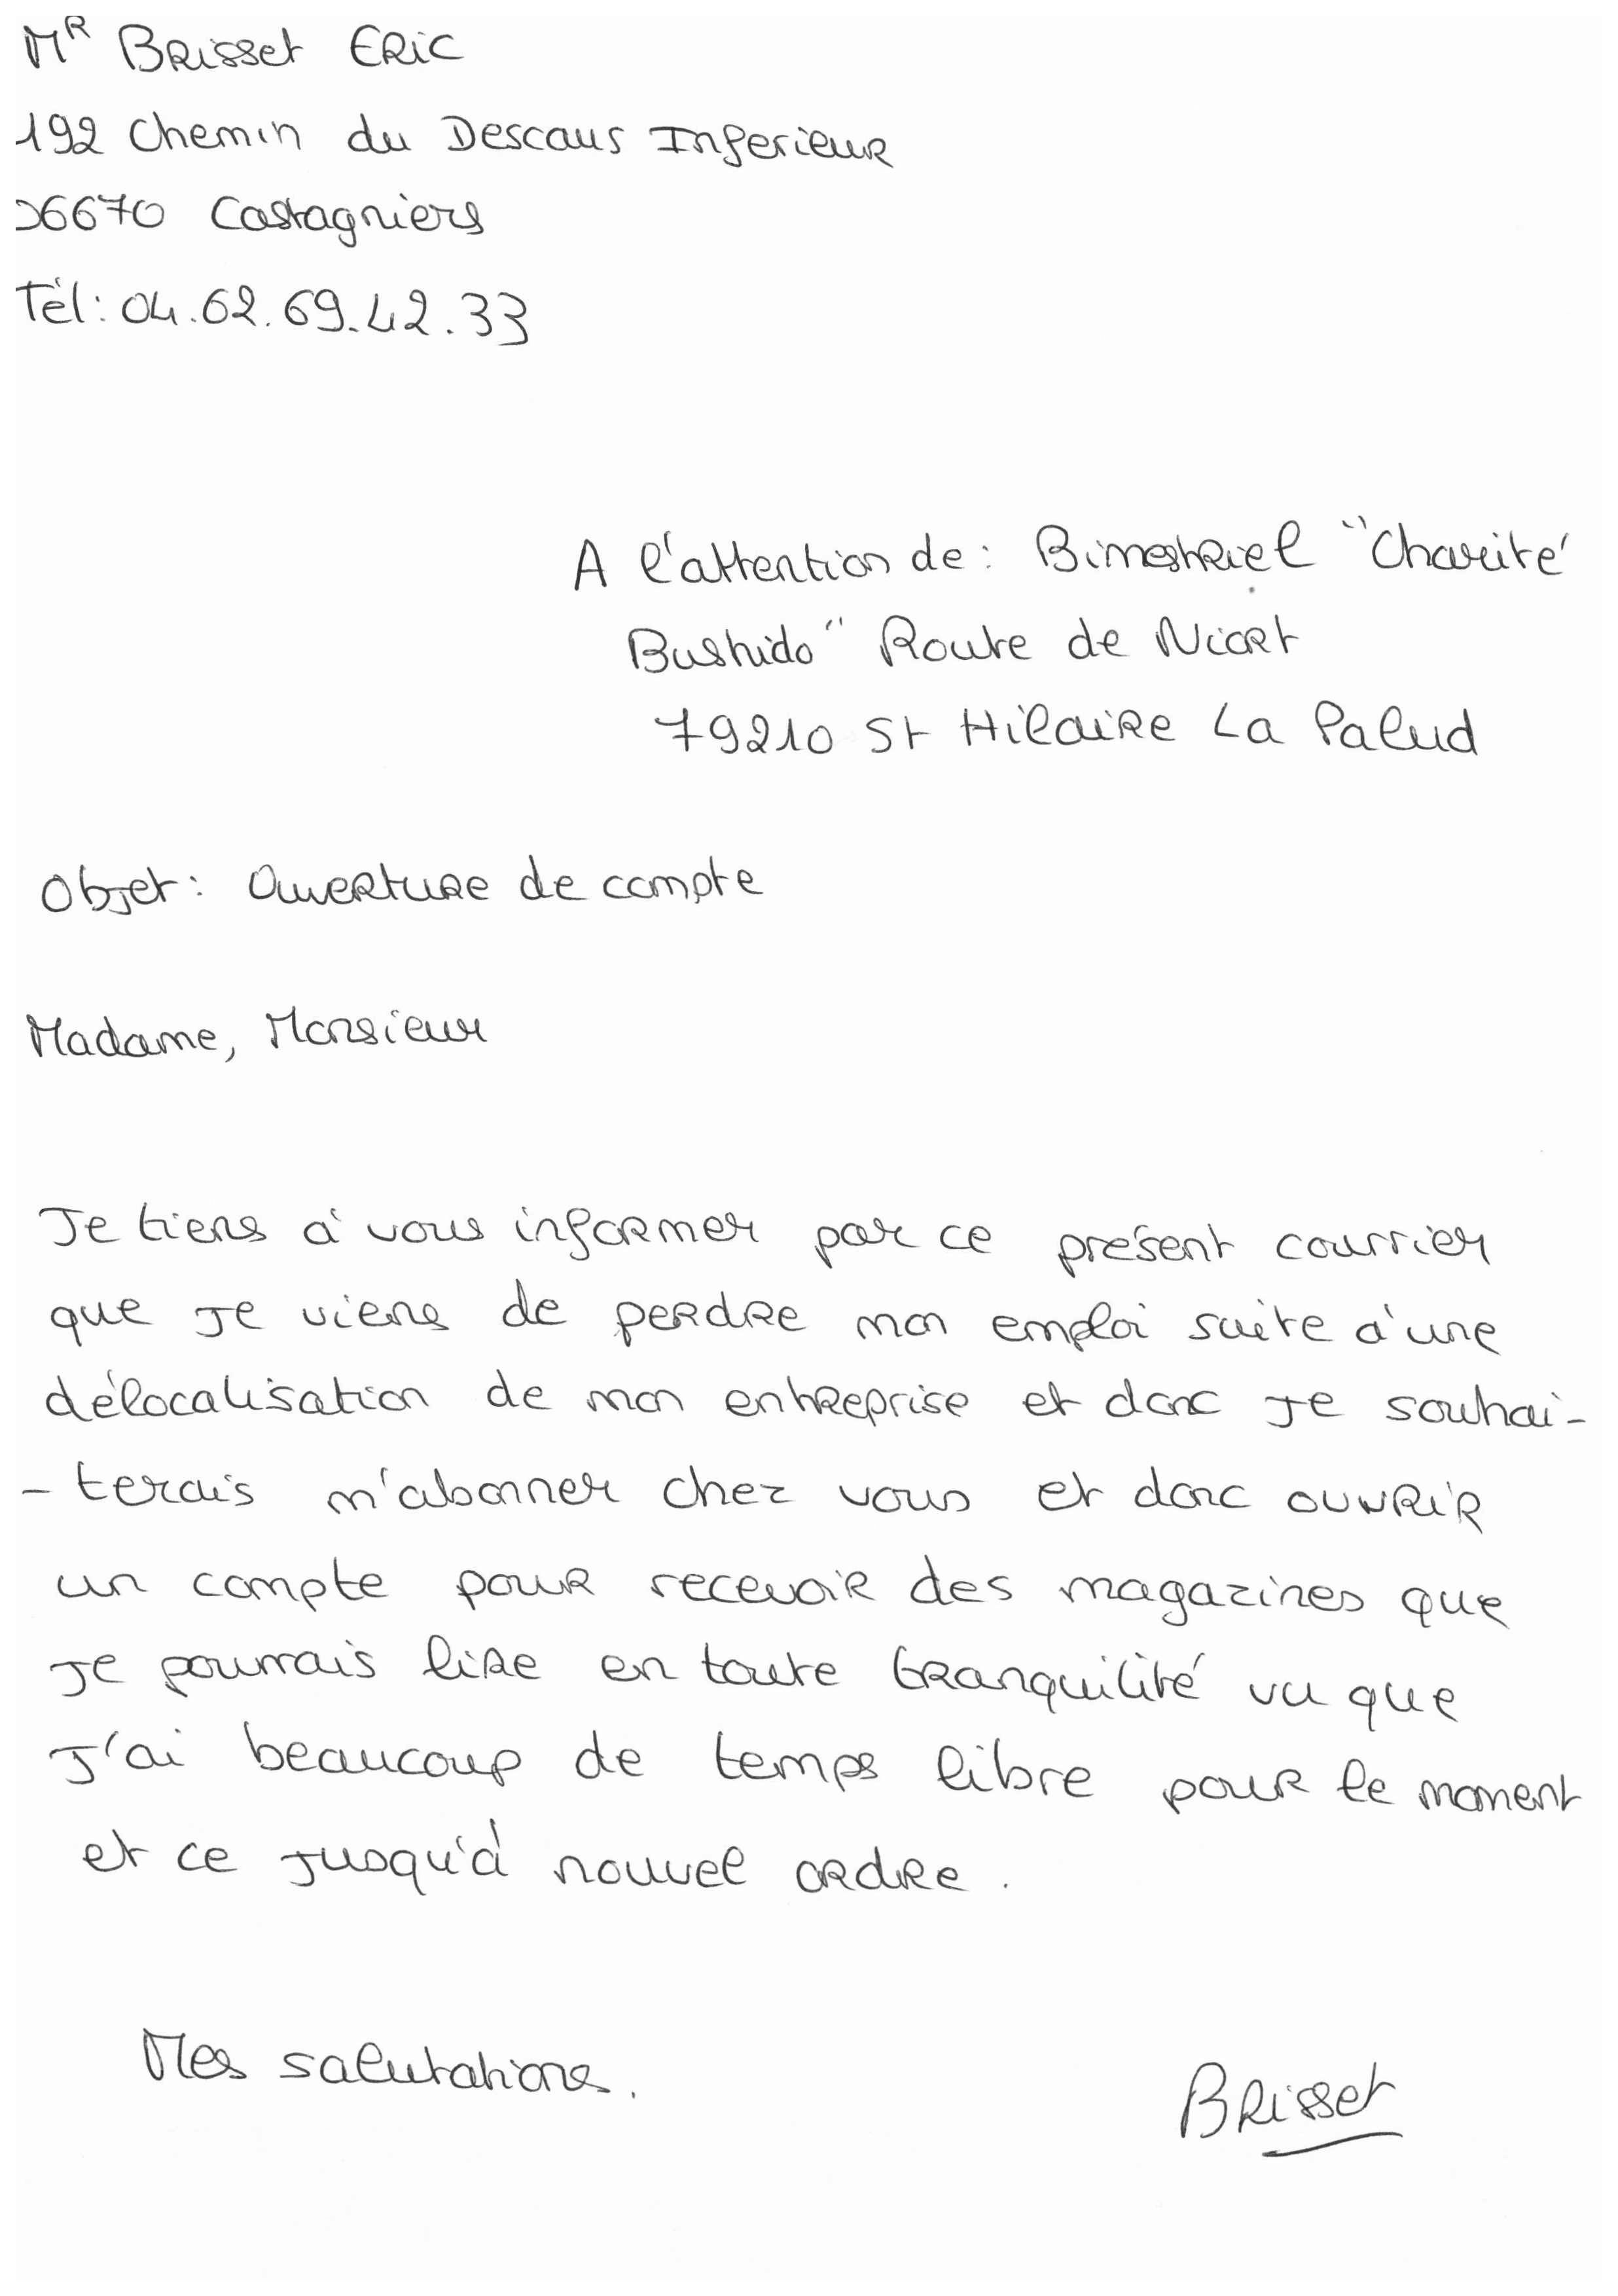 MR Brisset Eric
192 Chemin du Descaus Inferieur
06670 Castagniers
Tél: 04.62.69.42.33
A l'attention de: Bimestriel "Charité
Bushido" Route de Niort
79210 St Hilaire La Palud
Objet: Ouverture de compte
Madame, Monsieur
Je tiens à vous informer par ce présent courrier
que je viens de perdre mon emploi suite à une
délocalisation de mon entreprise et donc je souhai-
-terais m'abonner chez vous et donc ouvrir
un compte pour recevoir des magazines que
je pourrais lire en toute tranquilité vu que
j'ai beaucoup de temps libre pour le moment
et ce jusqu'à nouvel ordre.
Mes salutations.
Brisset